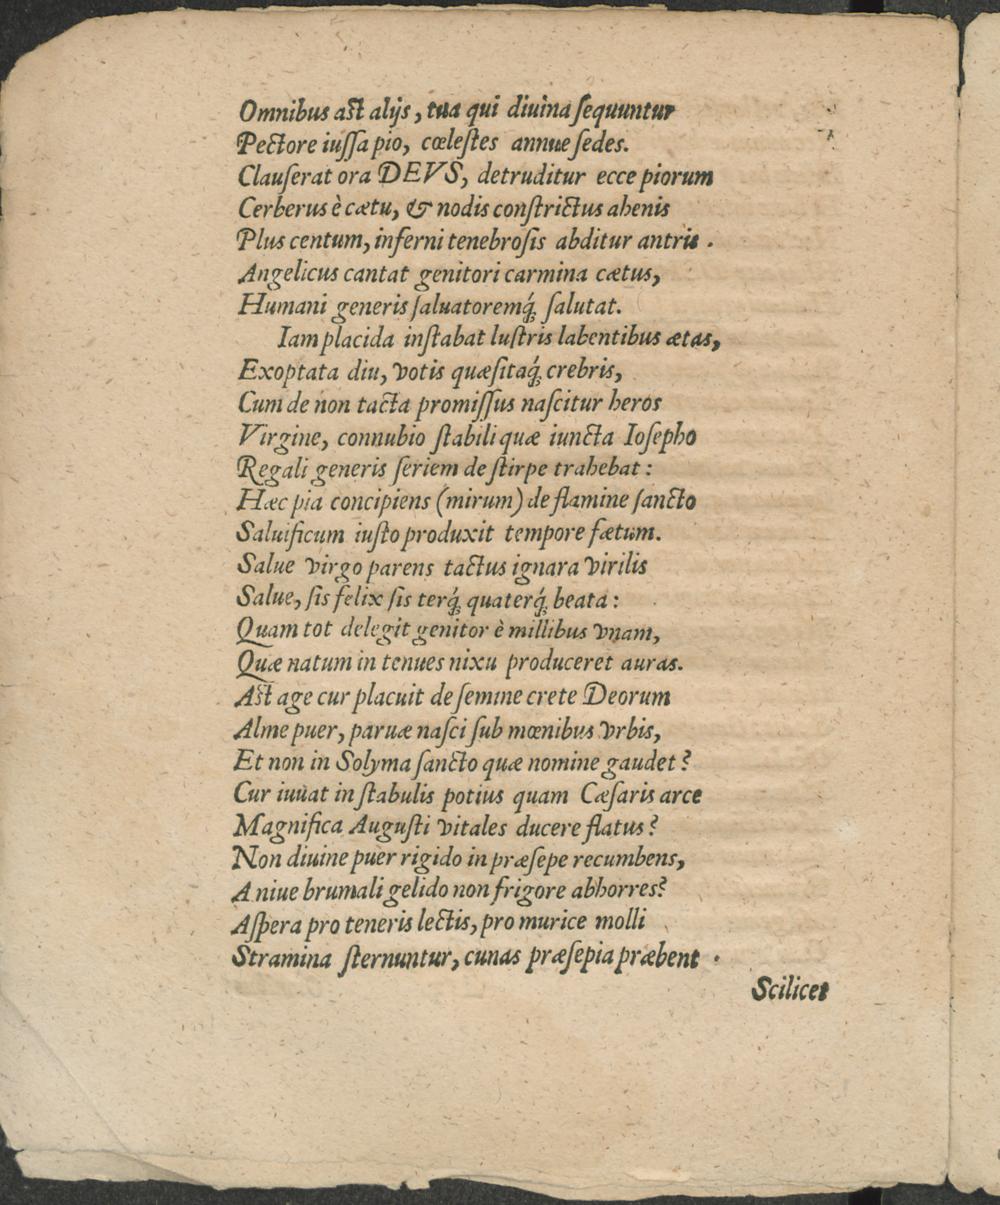 Omnibus ast alijs, tua qui diuina ſequuntur
Pectore iuſſa pio, cœleſtes annue ſedes.
Clauſerat ora DEVS, detruditur ecce piorum
Cerberus è cætu, & nodis conſtrictus ahenis
Plus centum, inferni tenebroſis abditur antris.
Angelicus cantat genitori carmina cætus,
Humani generis ſaluatoremq́; ſalutat.
Iam placida inſtabat luſtris labentibus ætas,
Exoptata diu, votis quæſitaq́; crebris,
Cum de non tacta promiſſus naſcitur heros
Virgine, connubio ſtabili quæ iuncta Ioſepho
Regali generis ſeriem de ſtirpe trahebat:
Hæc pia concipiens (mirum) de flamine ſancto
Saluificum iuſto produxit tempore fætum.
Salue virgo parens tactus ignara virilis
Salue, ſis felix ſis terq́; quaterq́; beata:
Quam tot delegit genitor è millibus vnam,
Quæ natum in tenues nixu produceret auras.
Aſt age cur placuit de ſemine crete Deorum
Alme puer, paruæ naſci ſub mœnibus vrbis,
Et non in Solyma ſancto quæ nomine gaudet?
Cur iuuat in ſtabulis potius quam Cæſaris arce
Magnifica Auguſti vitales ducere flatus?
Non diuine puer rigido in præſepe recumbens,
A niue brumali gelido non frigore abhorres?
Aſpera pro teneris lectis, pro murice molli
Stramina ſternuntur, cunas præſepia præbent.
Scilicet